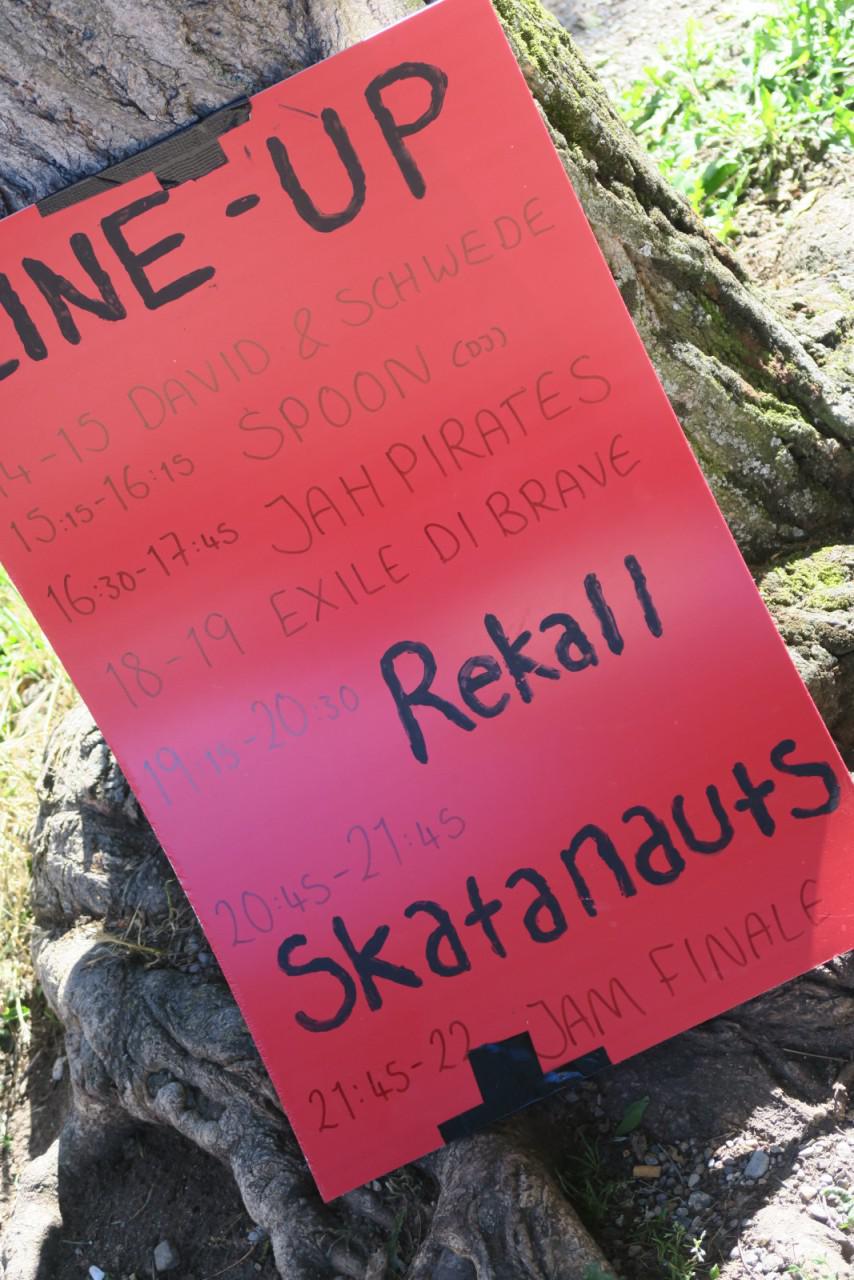 LINE-UP
14-15 DAVID & SCHWEDE
15:15-16:15 SPOON (DJ)
16:30-17:45 JAH PIRATES
18-19 EXILE DI BRAVE
19:15-20:30 Rekall
20:45-21:45
Skatanauts
21:45-22 JAM FINALE